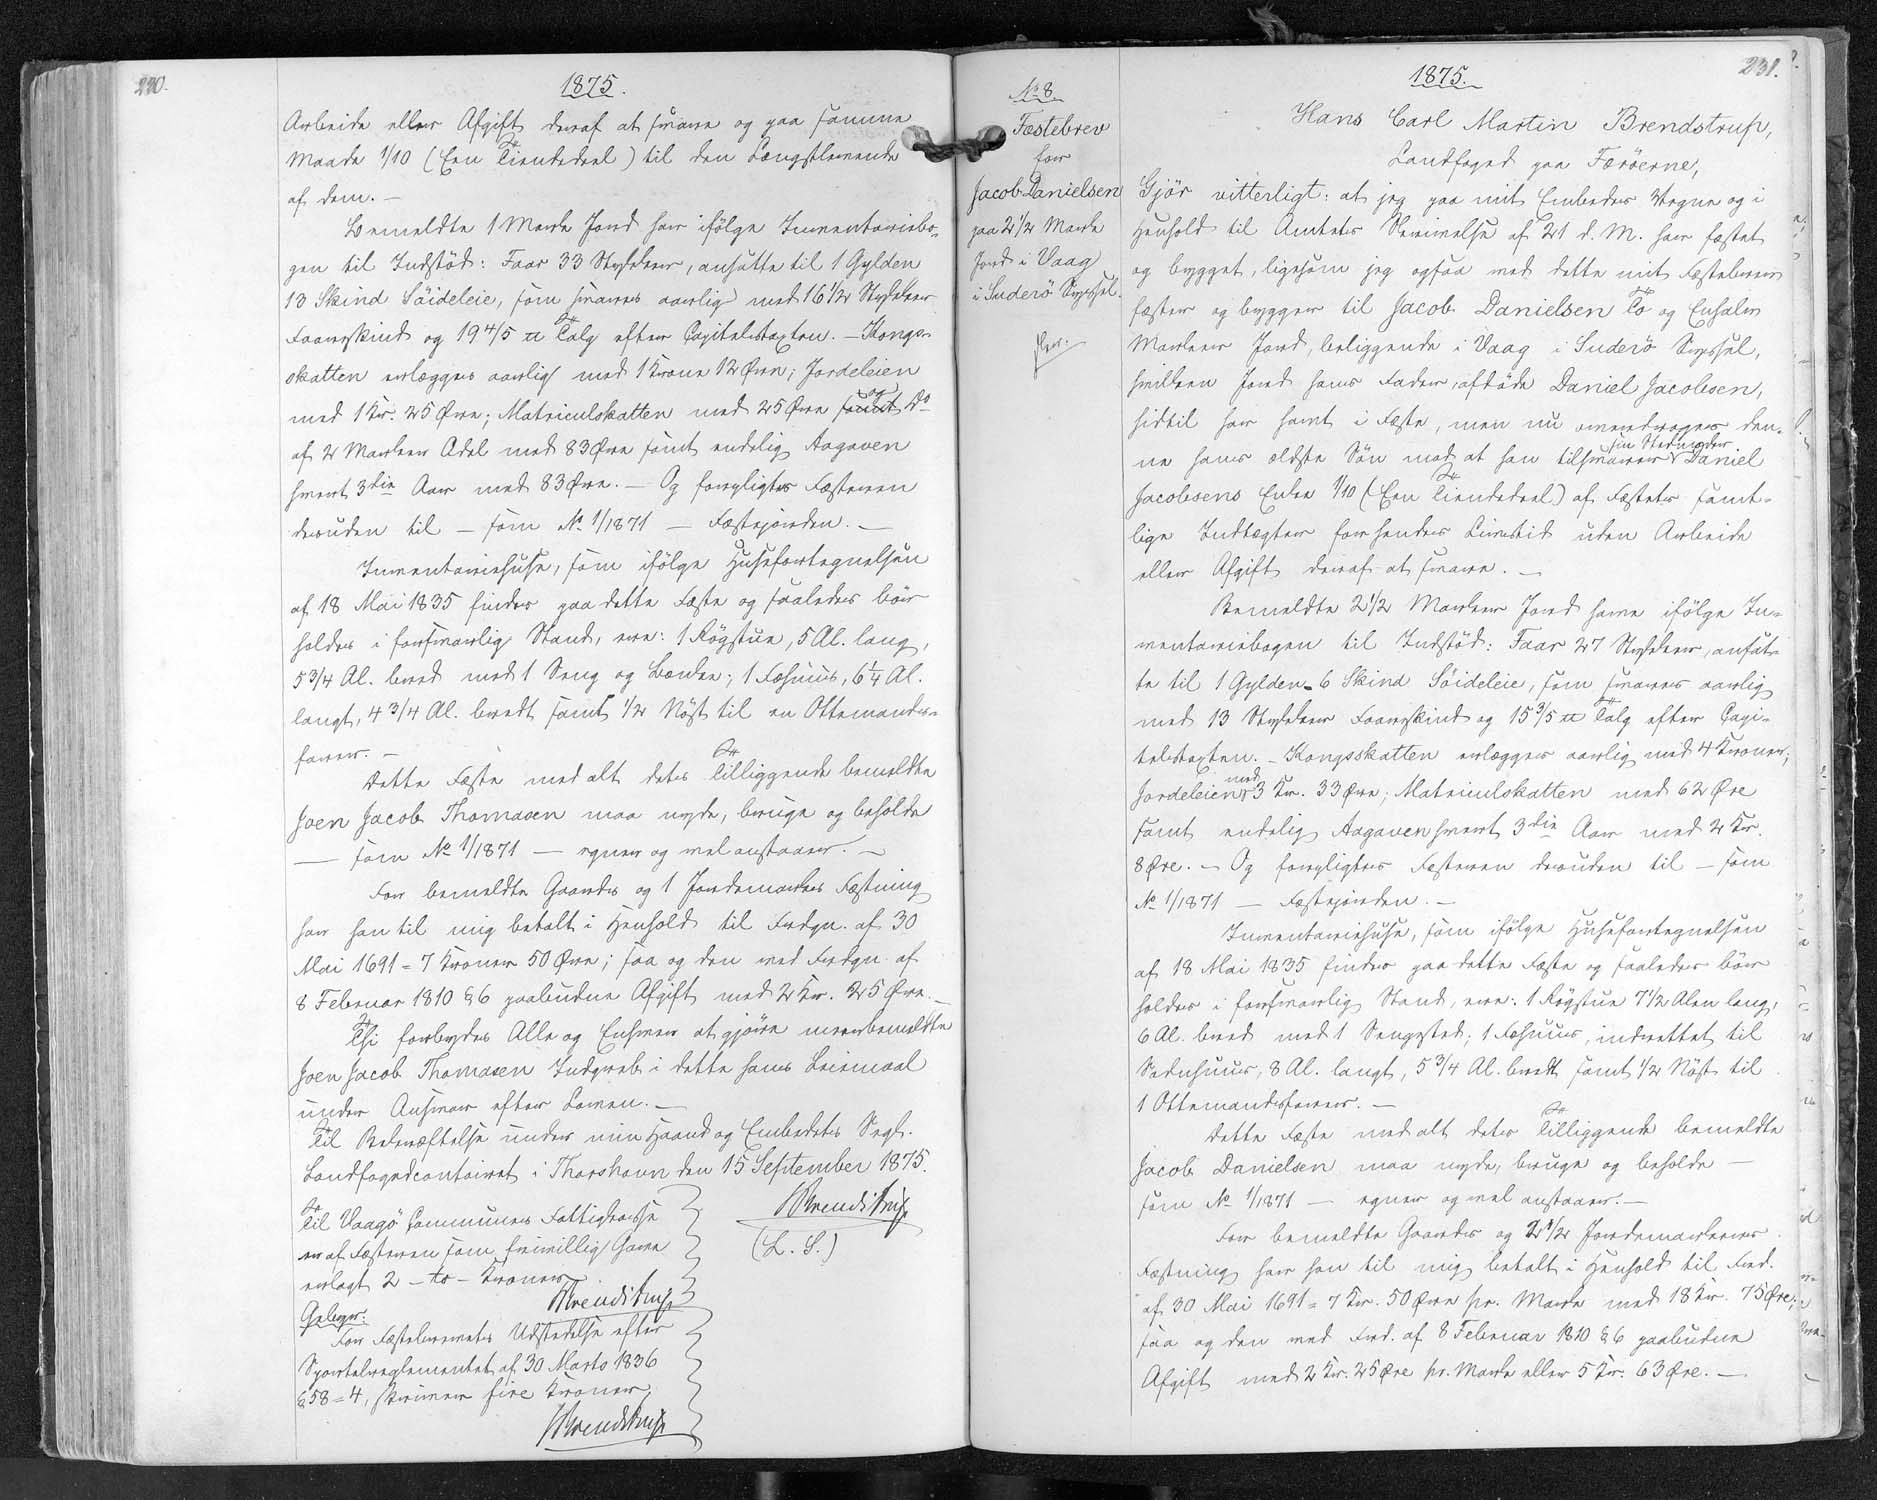 230.
1875.
Arbeide eller Afgift deraf at svare og paa samme
Maade 1/10 (Een Tiendedeel) til den Længstlevende
af dem. —
Bemeldte 1 Mark Jord har ifölge Inventariebo-
gen til Indstöd: Faar 33 Stykker, ansatte til 1 Gylden
13 Skind Söideleie, som svares aarlig med 16 1/2 Stykker
Faareskind og 19 4/5 ℔ Talg efter Capitelstaxten. — Kongs-
skatten erlægges aarlig med 1 Krone 12 Øre; Jordeleien
med 1 Kr. 25 Øre; Matriculskatten med 25 Øre samt og Do
af 2 Marker Odel med 83 Øre samt endelig Aagaven
hvert 3die Aar med 83 Øre. — Og forpligtes Fæsteren
desuden til — som No 1/1871 — Fæstejorden. —
Inventariehuse, som ifölge Husefortegnelsen
af 18 Mai 1835 findes paa dette Fæste og saaledes bör
holdes i forsvarlig Stand, ere: 1 Røgstue, 5 Al. lang,
5 3/4 Al. bred med 1 Seng og Bænke; 1 Fæhuus, 6 1/4 Al.
langt, 4 3/4 Al. bredt samt 1/2 Nøst til en Ottemands-
farer. —
Dette Fæste med alt dets Tilliggende bemeldte
Joen Jacob Thomasen maa nyde, bruge og beholde
— som No 1/1871 — egner og vel anstaaer. —
For bemeldte Gaards og 1 Jordemarks Fæstning
har han til mig betalt i Henhold til Frdgn. af 30
Mai 1691 = 7 Kroner 50 Øre; saa og den ved Frdgn. af
8 Februar 1810 § 6 paabudne Afgift med 2 Kr. 25 Øre. —
Thi forbydes Alle og Enhver at gjöre merebemeldte
Joen Jacob Thomasen Indgreb i dette hans Leiemaal
under Ansvar efter Loven. —
Til Bekræftelse under min Haand og Embedets Segl.
Landfogedcontoiret i Thorshavn den 15 September 1875.
HBrendstrup
(L. S.)
Til Vaagö Communes Fattigkasse
er af Fæsteren som frivillig Gave
erlagt 2 — to — Kroner.
HBrendstrup
Gebyr:
For Fæstebrevets Udstedelse efter
Sportelreglementet af 30 Marts 1836
§ 58 = 4, skriver fire Kroner.
HBrendstrup
No 8
Fæstebrev
for
Jacob Danielsen
paa 2 1/2 Mark
Jord i Vaag
i Suderö Syssel.
231.
1875.
Hans Carl Martin Brendstrup,
Landfoged paa Færöerne,
Gjör vitterligt: at jeg paa mit Embedes Vegne og i
Henhold til Amtets Skrivelse af 21 d. M. har fæstet
og bygget, ligesom jeg ogsaa med dette mit Fæstebrev
fæster og bygger til Jacob Danielsen To og Enhalv
Marker Jord, beliggende i Vaag i Suderö Syssel,
hvilken Jord hans Fader, afdöde Daniel Jacobsen,
hidtil har havt i Fæste, men nu overdrages den-
ne hans ældste Sön mod at han tilsvarer sin Stedmoder Daniel
Jacobsens Enke 1/10 (Een Tiendedeel) af Fæstets samt-
lige Indtægter for hendes Livstid uden Arbeide
eller Afgift deraf at svare. —
Bemeldte 2 1/2 Marker Jord have ifölge In-
ventariebogen til Indstöd: Faar 27 Stykker, ansat-
te til 1 Gylden 6 Skind Söideleie, som svares aarlig
med 13 Stykker Faareskind og 15 3/5 ℔ Talg efter Capi-
telstaxten. — Kongsskatten erlægges aarlig med 4 Kroner;
Jordeleien med 3 Kr. 33 Øre; Matriculskatten med 62 Øre
samt endelig Aagaven hvert 3die Aar med 2 Kr.
8 Øre. — Og forpligtes Fæsteren desuden til — som
No 1/1871 — Fæstejorden. —
Inventariehuse, som ifölge Husefortegnelsen
af 18 Mai 1835 findes paa dette Fæste og saaledes bör
holdes i forsvarlig Stand, ere: 1 Røgstue 7 1/2 Alen lang,
6 Al. bred med 1 Sengsted; 1 Fæhuus, indrettet til
Sædhuus, 8 Al. langt, 5 3/4 Al. bredt samt 1/2 Nøst til
1 Ottemandsfarer. —
Dette Fæste med alt dets Tilliggende bemeldte
Jacob Danielsen maa nyde, bruge og beholde —
som No 1/1871 — egner og vel anstaaer. —
For bemeldte Gaards og 2 1/2 Jordemarkers
Fæstning har han til mig betalt i Henhold til Frd.
af 30 Mai 1691 = 7 Kr. 50 Øre pr. Mark med 18 Kr. 75 Øre;
saa og den ved Frd. af 8 Februar 1810 § 6 paabudne
Afgift med 2 Kr. 25 Øre pr. Mark eller 5 Kr. 63 Øre. —